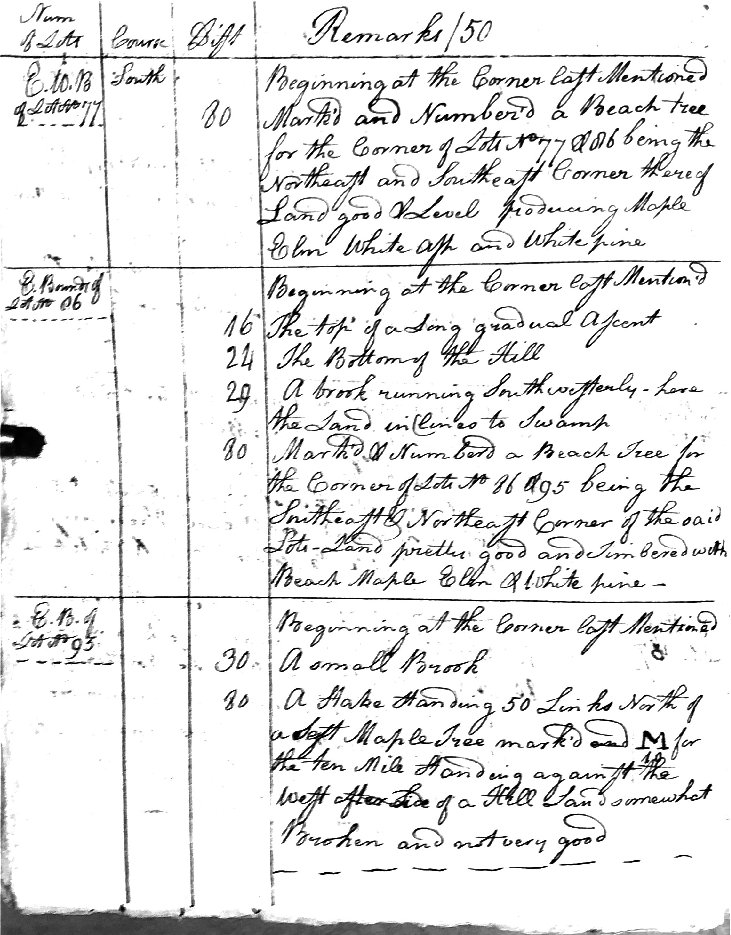 Num
of Lots Course Dist Remarks / 50
E. W. B South Beginning at the Corner last Mentioned
of Lot No 77 80 Mark'd and Number'd a Beach tree
for the Corner of Lots No 77 & 86 being the
Northeast and Southeast Corner thereof
Land good & Level producing Maple
Elm White Ash and White pine
E. Bounds of Beginning at the Corner last Mention'd
Lot No 86
16 The top of a Long gradual Ascent
24 The Bottom of the Hill
29 A brook running Southwesterly - here
the Land inclines to Swamp
80 Mark'd & Number'd a Beach Tree for
the Corner of Lots No 86 & 95 being the
Southeast & Northeast Corner of the said
Lots - Land pretty good and Timbered with
Beach Maple Elm & White pine -
E. B. of Beginning at the Corner last Mentioned
Lot No 95
30 A small Brook
80 A Stake Standing 50 Links North of
a Soft Maple Tree mark'd and M for
10
the ten Mile Standing against the
West Side of a Hill Land somewhat
Broken and not very good